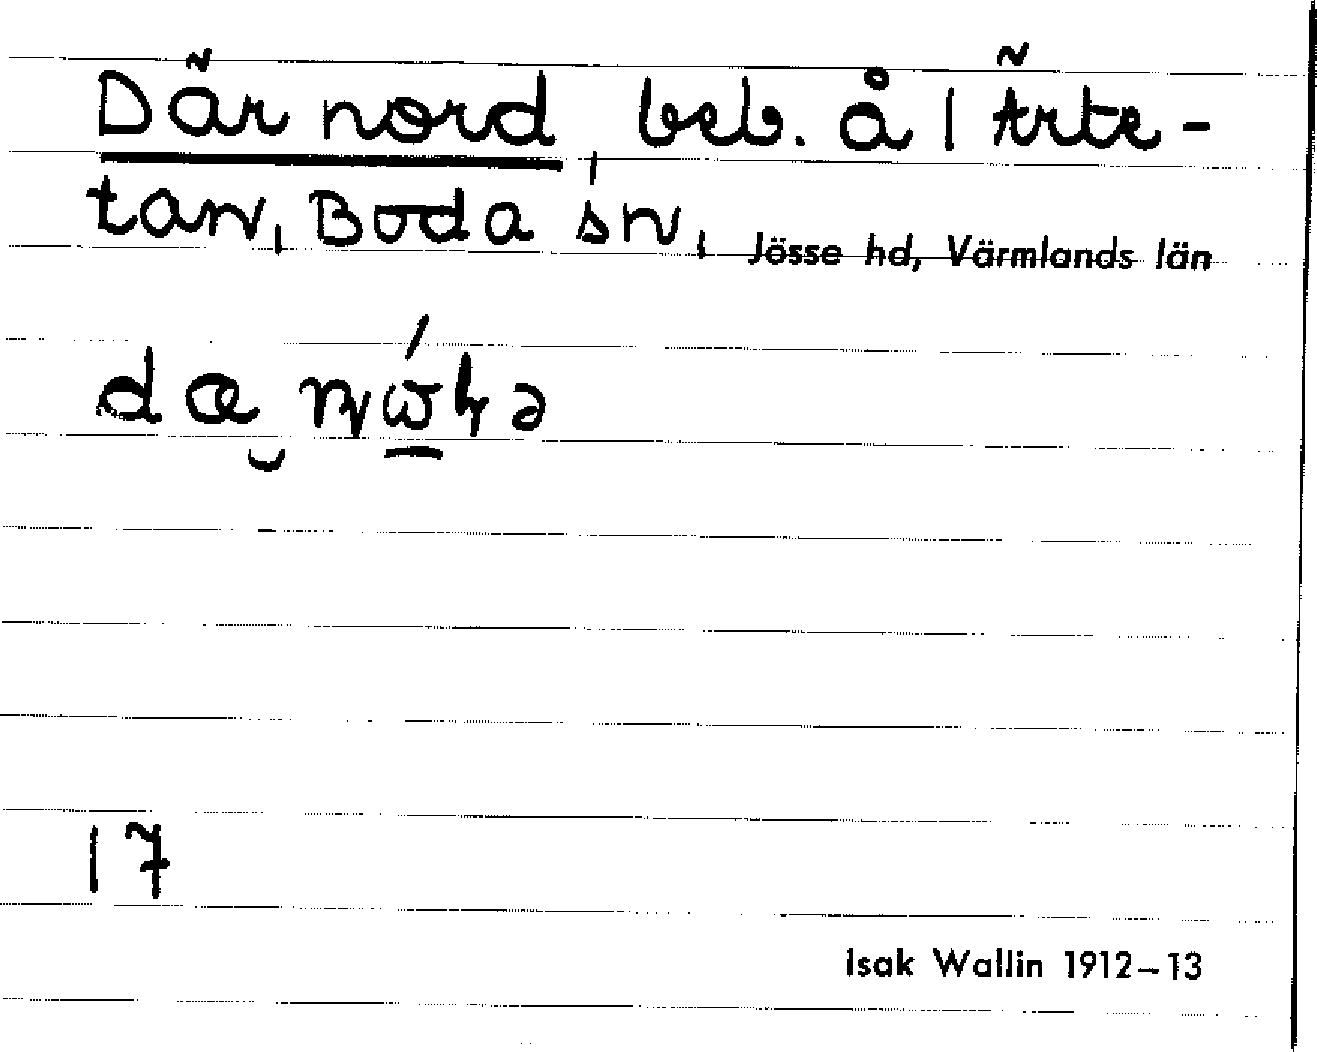 Där nord, beb. å 1 Ärte-
tan, Boda sn, Jösse hd, Värmlands län
17
Isak Wallin 1912–13